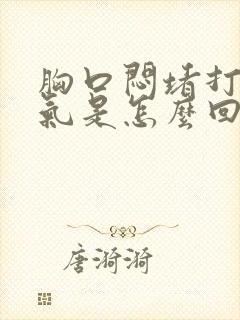 胸口悶堵打
氣是怎麼回
唐漪漪